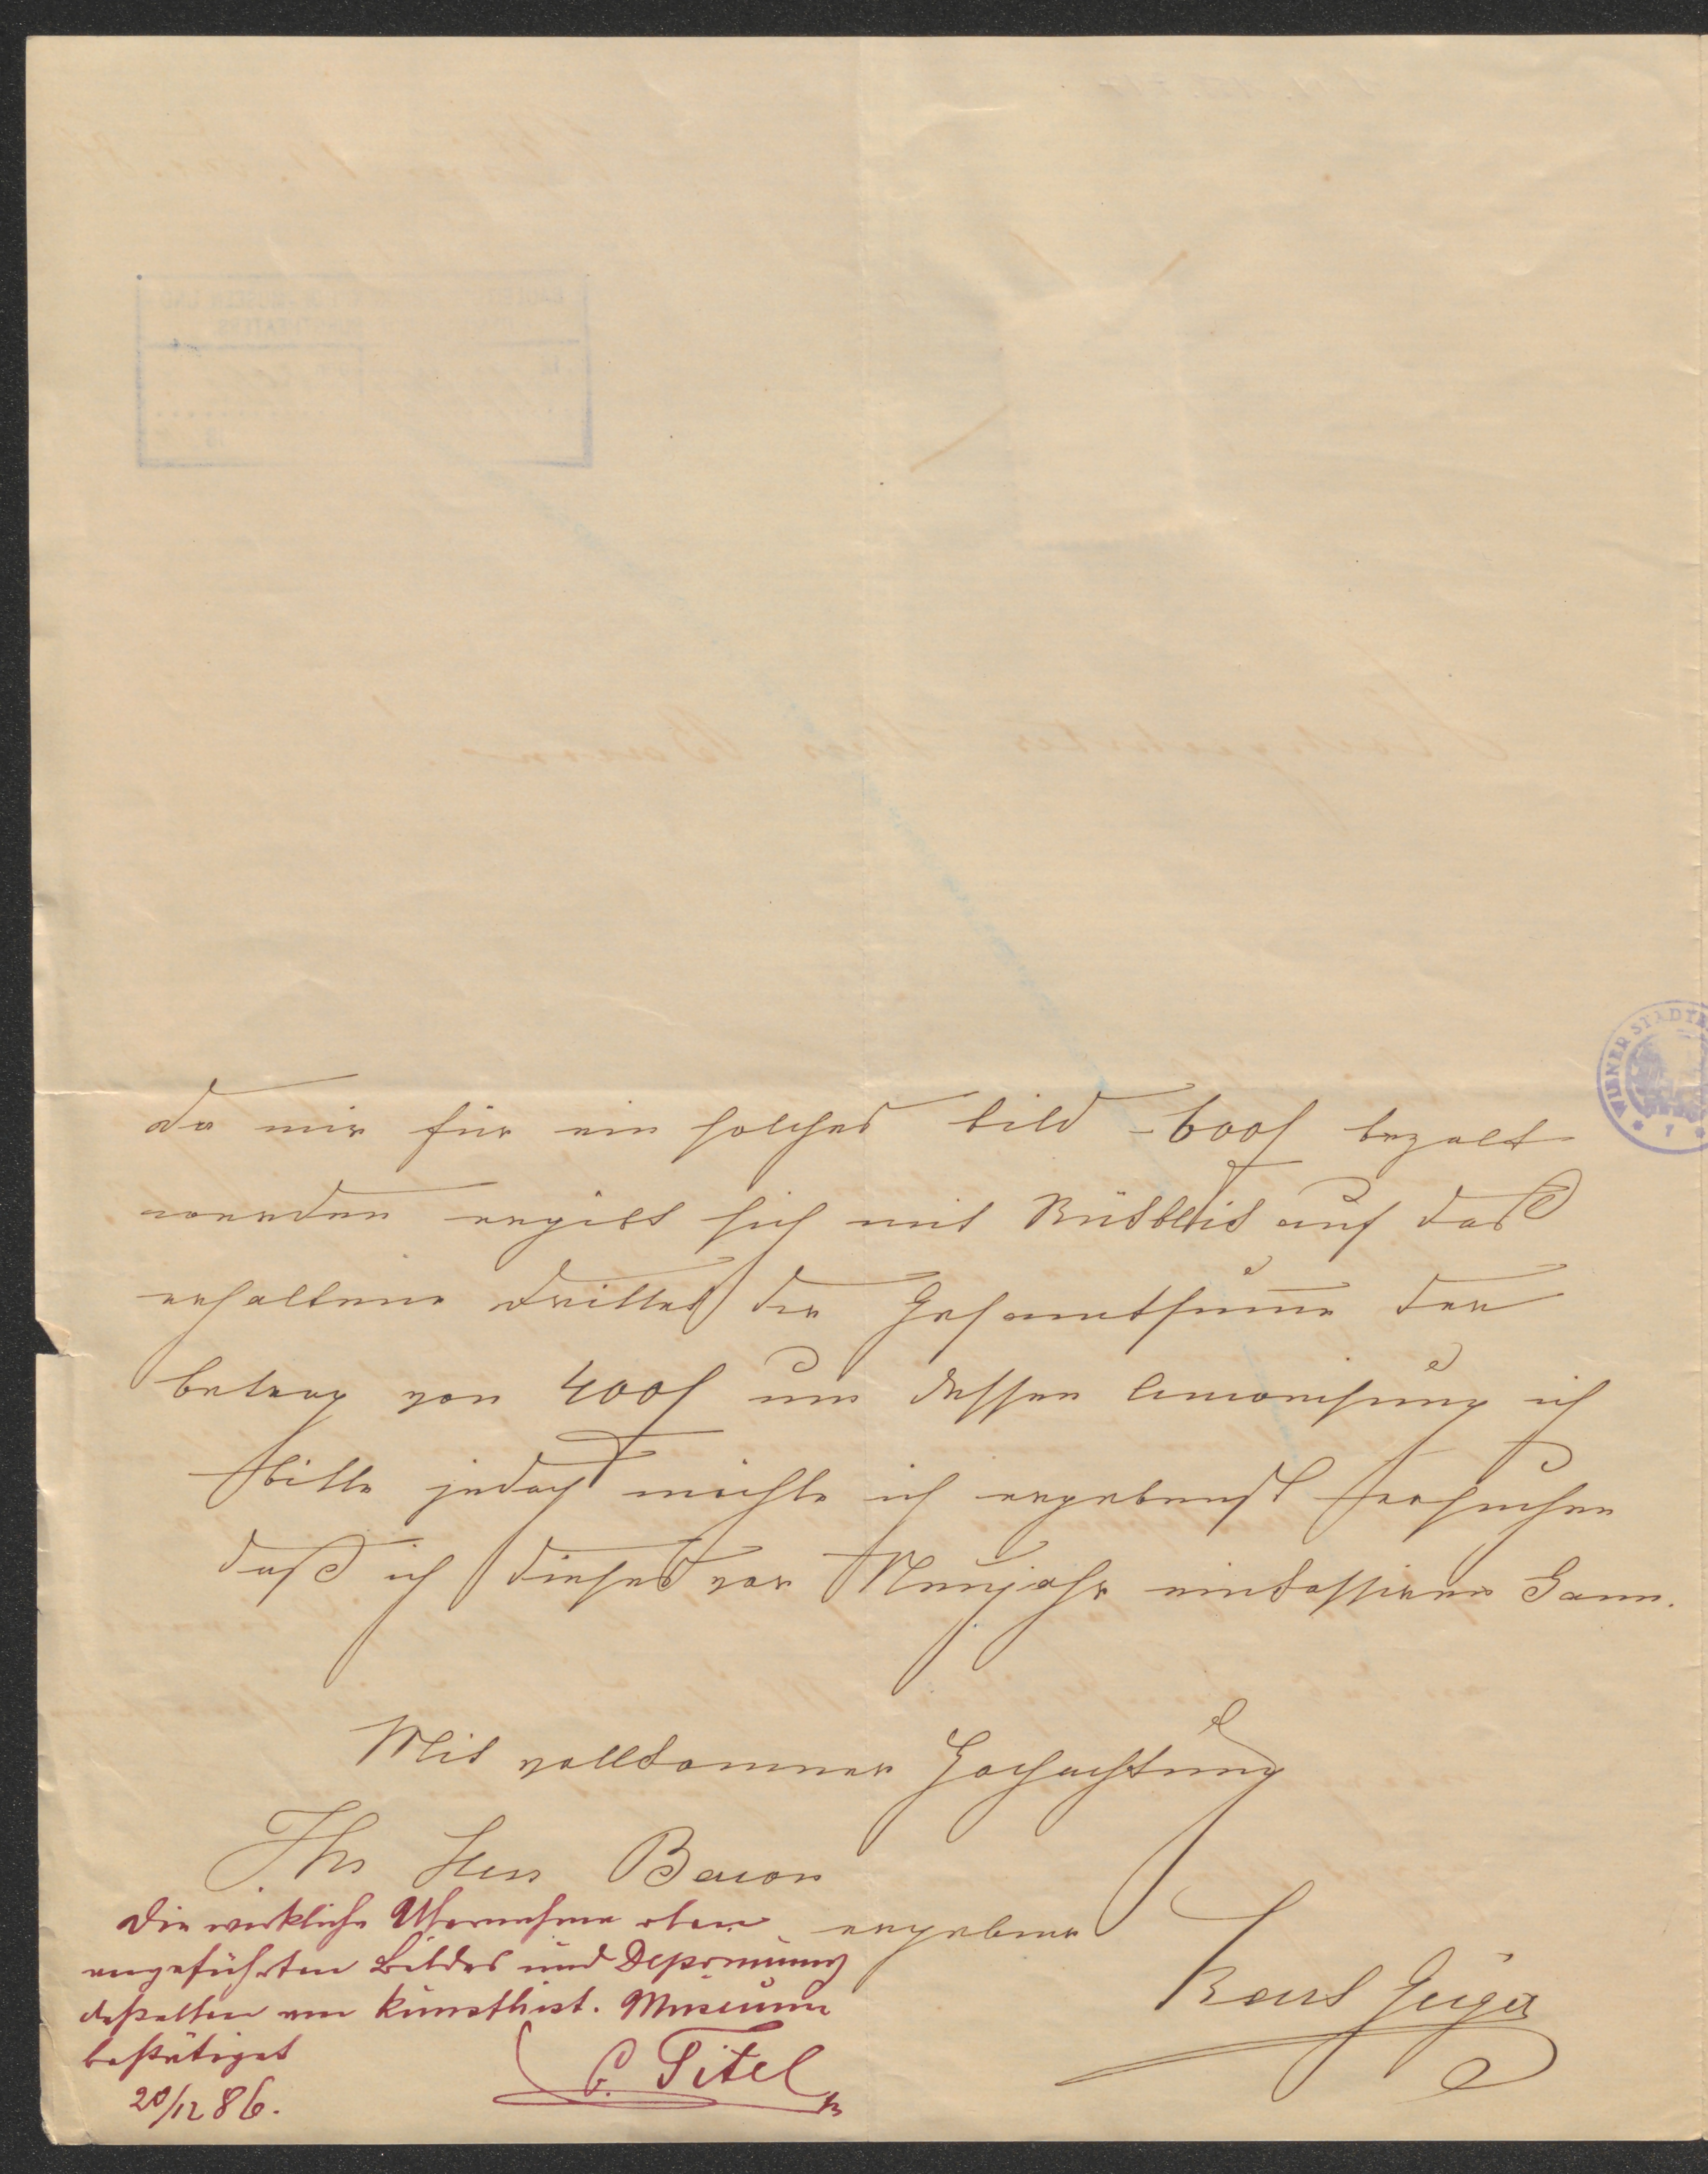 da mir für ein solches bild – 600f bezalt
werden ergibt sich mit Rükblik auf das
erhaltene drittel der Gesamtsum̅e der
betrag von 400f um dessen Anweisung ich
bitte jedoch möchte ich ergebenst ersuchen
daß ich dieses vor Neujahr einkassieren kann.
Mit vollkommner Hochachtung
Ihr Herr Baron
ergebener
Karl Geiger
Die wirkliche Übernahme oben
angeführten Bildes und Deponirung
desselben im kunsthist. Museum
bestätiget
C. Titel
20/12 86.
WIENER STADT